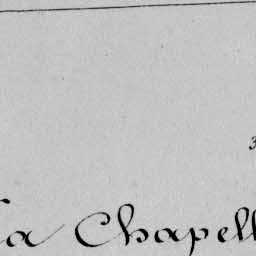 3
La Chapell